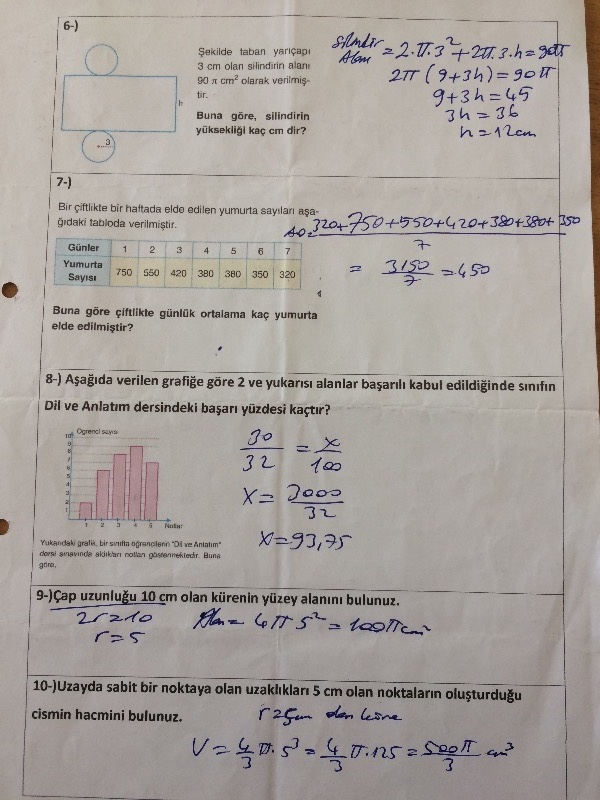 6-)
Şekilde taban yarıçapı
3 cm olan silindirin alanı
90 π cm² olarak verilmiş-
tir.
Buna göre, silindirin
yüksekliği kaç cm dir?
h
3
Silindir
Alanı = 2.π.3² + 2π.3.h = 90π
2π (9+3h) = 90π
9+3h = 45
3h = 36
h = 12cm
7-)
Bir çiftlikte bir haftada elde edilen yumurta sayıları aşa-
ğıdaki tabloda verilmiştir.
Günler 1 2 3 4 5 6 7
Yumurta
Sayısı 750 550 420 380 380 350 320
Buna göre çiftlikte günlük ortalama kaç yumurta
elde edilmiştir?
AO = 320+750+550+420+380+380+350
7
= 3150/7 = 450
8-) Aşağıda verilen grafiğe göre 2 ve yukarısı alanlar başarılı kabul edildiğinde sınıfın
Dil ve Anlatım dersindeki başarı yüzdesi kaçtır?
Öğrenci sayısı
10
9
8
7
6
5
4
3
2
1
1 2 3 4 5 Notlar
Yukarıdaki grafik, bir sınıfta öğrencilerin "Dil ve Anlatım"
dersi sınavında aldıkları notları göstermektedir. Buna
göre,
30/32 = x/100
X = 3000/32
X = 93,75
9-)Çap uzunluğu 10 cm olan kürenin yüzey alanını bulunuz.
2r = 10
r = 5
Alan = 4π 5² = 100π cm²
10-)Uzayda sabit bir noktaya olan uzaklıkları 5 cm olan noktaların oluşturduğu
cismin hacmini bulunuz.
r = 5cm olan küre
V = 4/3 π.5³ = 4/3 π.125 = 500π/3 cm³